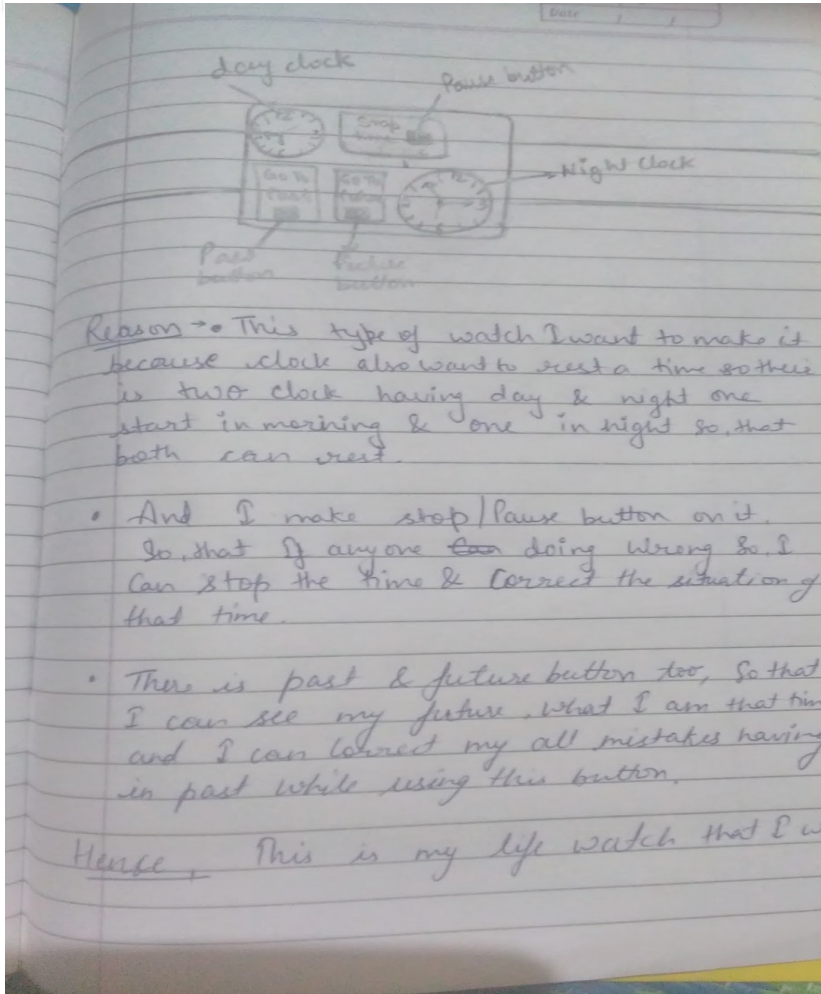 Date / /
day clock
Pause button
Stop
Night clock
Go To Go To
Past
Past Future
button button
Reason → • This type of watch I want to make it
because clock also want to rest a time so there
is two clock having day & night one
start in morining & one in night so, that
both can rest.
• And I make stop/Pause button on it.
So, that If anyone doing wrong So, I
Can stop the time & Correct the situation of
that time.
• There is past & future button too, So that
I can see my future, what I am that tim
and I can Correct my all mistakes having
in past while using this button.
Hence, This is my life watch that I w